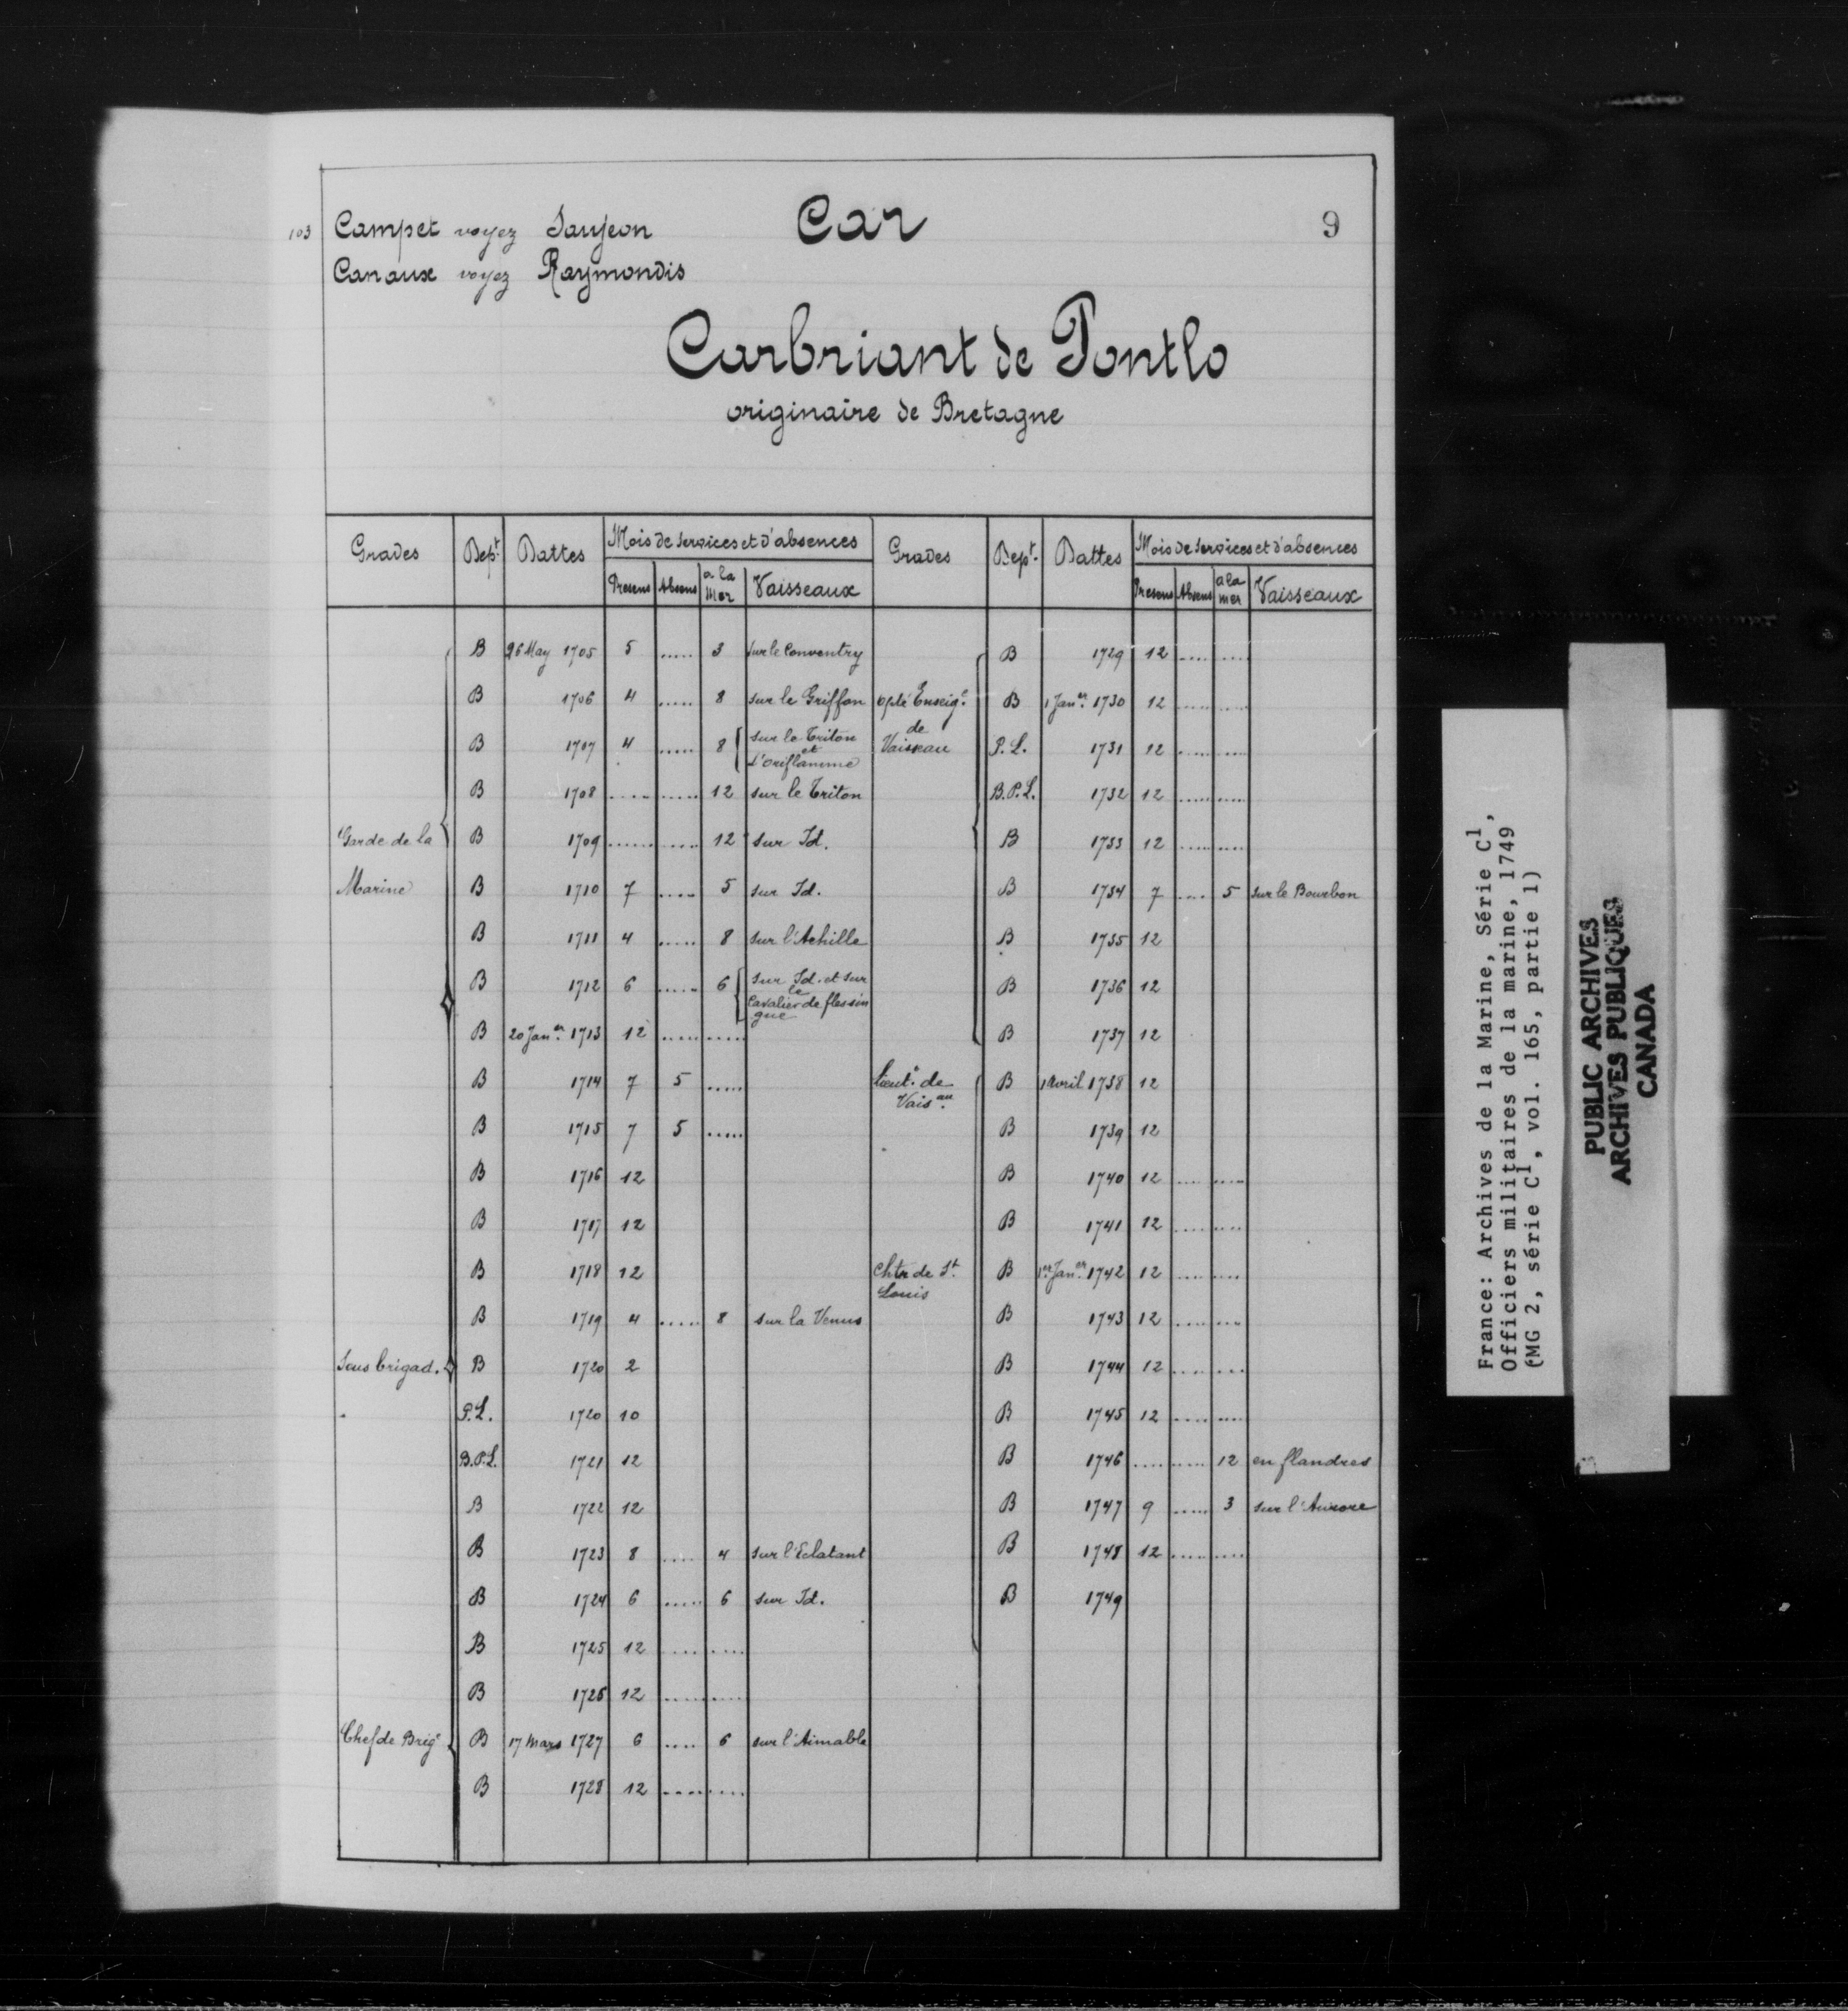 103 Campet voyez Saujeon
Car
9
Canaux voyez Raymondis
Carbriant de Pontlo
originaire de Bretagne
Grades Dept. Dattes Mois de services et d'absences Grades Dept. Dattes Mois de services et d'absences
Presens Absens a la mer Vaisseaux Presens Absens a la mer Vaisseaux
B 26 May 1705 5 ..... 3 sur le Conventry B 1729 12 ..... ....
B 1706 4 ..... 8 sur le Griffon opté Enseig.e B 1 Jan.er 1730 12 ..... ....
B 1707 4 ..... 8 sur le Triton et L'oriflamme de Vaisseau P.L. 1731 12 ..... ....
B 1708 ..... ..... 12 sur le Triton B.P.L. 1732 12 ..... .....
Garde de la B 1709 ...... ..... 12 sur Id. B 1733 12 ..... ....
Marine B 1710 7 ..... 5 sur Id. B 1734 7 .... 5 sur le Bourbon
B 1711 4 ..... 8 sur l'Achille B 1735 12
B 1712 6 ..... 6 sur Id. et sur le Cavalier de flessingue B 1736 12
B 20 Jan.er 1713 12 ..... ..... B 1737 12
B 1714 7 5 ..... Lieut.t de Vais.au B 1 Avril 1738 12
B 1715 7 5 ..... B 1739 12
B 1716 12 B 1740 12 .... .....
B 1717 12 B 1741 12 .... ....
B 1718 12 chlr de St. Louis B 1er Jan.er 1742 12 .... ....
B 1719 4 ..... 8 sur la Venus B 1743 12 .... ....
Sous brigad. B 1720 2 B 1744 12 .... ....
P.L. 1720 10 B 1745 12 .... ....
B.P.L. 1721 12 B 1746 .... ..... 12 en flandres
B 1722 12 B 1747 9 ..... 3 sur l'Aurore
B 1723 8 .... 4 sur l'Eclatant B 1748 12 ..... ....
B 1724 6 ..... 6 sur Id. B 1749
B 1725 12 .... ....
B 1726 12 ..... ....
Chef de Brig.e B 17 Mars 1727 6 .... 6 sur l'Aimable
B 1728 12 ..... ....
France: Archives de la Marine, Série C1,
Officiers militaires de la marine, 1749
(MG 2, série C1, vol. 165, partie 1)
PUBLIC ARCHIVES
ARCHIVES PUBLIQUES
CANADA